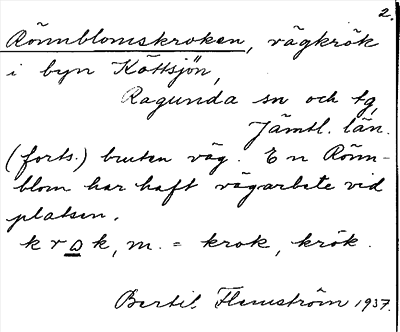 2.
Rönnblomskroken, vägkrök
i byn Köttsjön,
Ragunda sn och tg,
Jämtl. län.
(forts.) bruten väg. En Rönn-
blom har haft vägarbete vid
platsen.
k r o k, m. = krok, krök.
Bertil Flemström 1937.